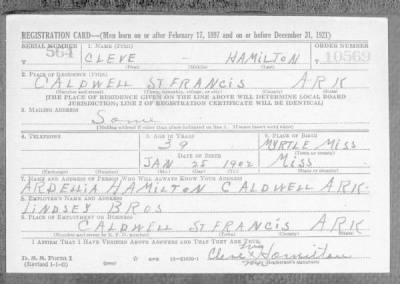 REGISTRATION CARD—(Men born on or after February 17, 1897 and on or before December 31, 1921)
SERIAL NUMBER 1. NAME (Print) ORDER NUMBER
T 564 CLEVE HAMILTON T 10569
(First) (Middle) (Last)
2. PLACE OF RESIDENCE (Print)
CALDWELL ST FRANCIS ARK
(Number and street) (Town, township, village, or city) (County) (State)
[THE PLACE OF RESIDENCE GIVEN ON THE LINE ABOVE WILL DETERMINE LOCAL BOARD
JURISDICTION; LINE 2 OF REGISTRATION CERTIFICATE WILL BE IDENTICAL]
3. MAILING ADDRESS
Same
[Mailing address if other than place indicated on line 2. If same insert word same]
4. TELEPHONE 5. AGE IN YEARS 6. PLACE OF BIRTH
39 MYRTLE MISS
DATE OF BIRTH (Town or county)
JAN 25 1902 MISS
(Exchange) (Number) (Mo.) (Day) (Yr.) (State or country)
7. NAME AND ADDRESS OF PERSON WHO WILL ALWAYS KNOW YOUR ADDRESS
ARDELLIA HAMILTON CALDWELL ARK.
8. EMPLOYER'S NAME AND ADDRESS
LINDSEY BROS
9. PLACE OF EMPLOYMENT OR BUSINESS
CALDWELL ST FRANCIS ARK
(Number and street or R. F. D. number) (Town) (County) (State)
I AFFIRM THAT I HAVE VERIFIED ABOVE ANSWERS AND THAT THEY ARE TRUE.
D. S. S. Form 1
(Revised 1-1-42) (over) Cleve Hamilton
(Registrant's signature)